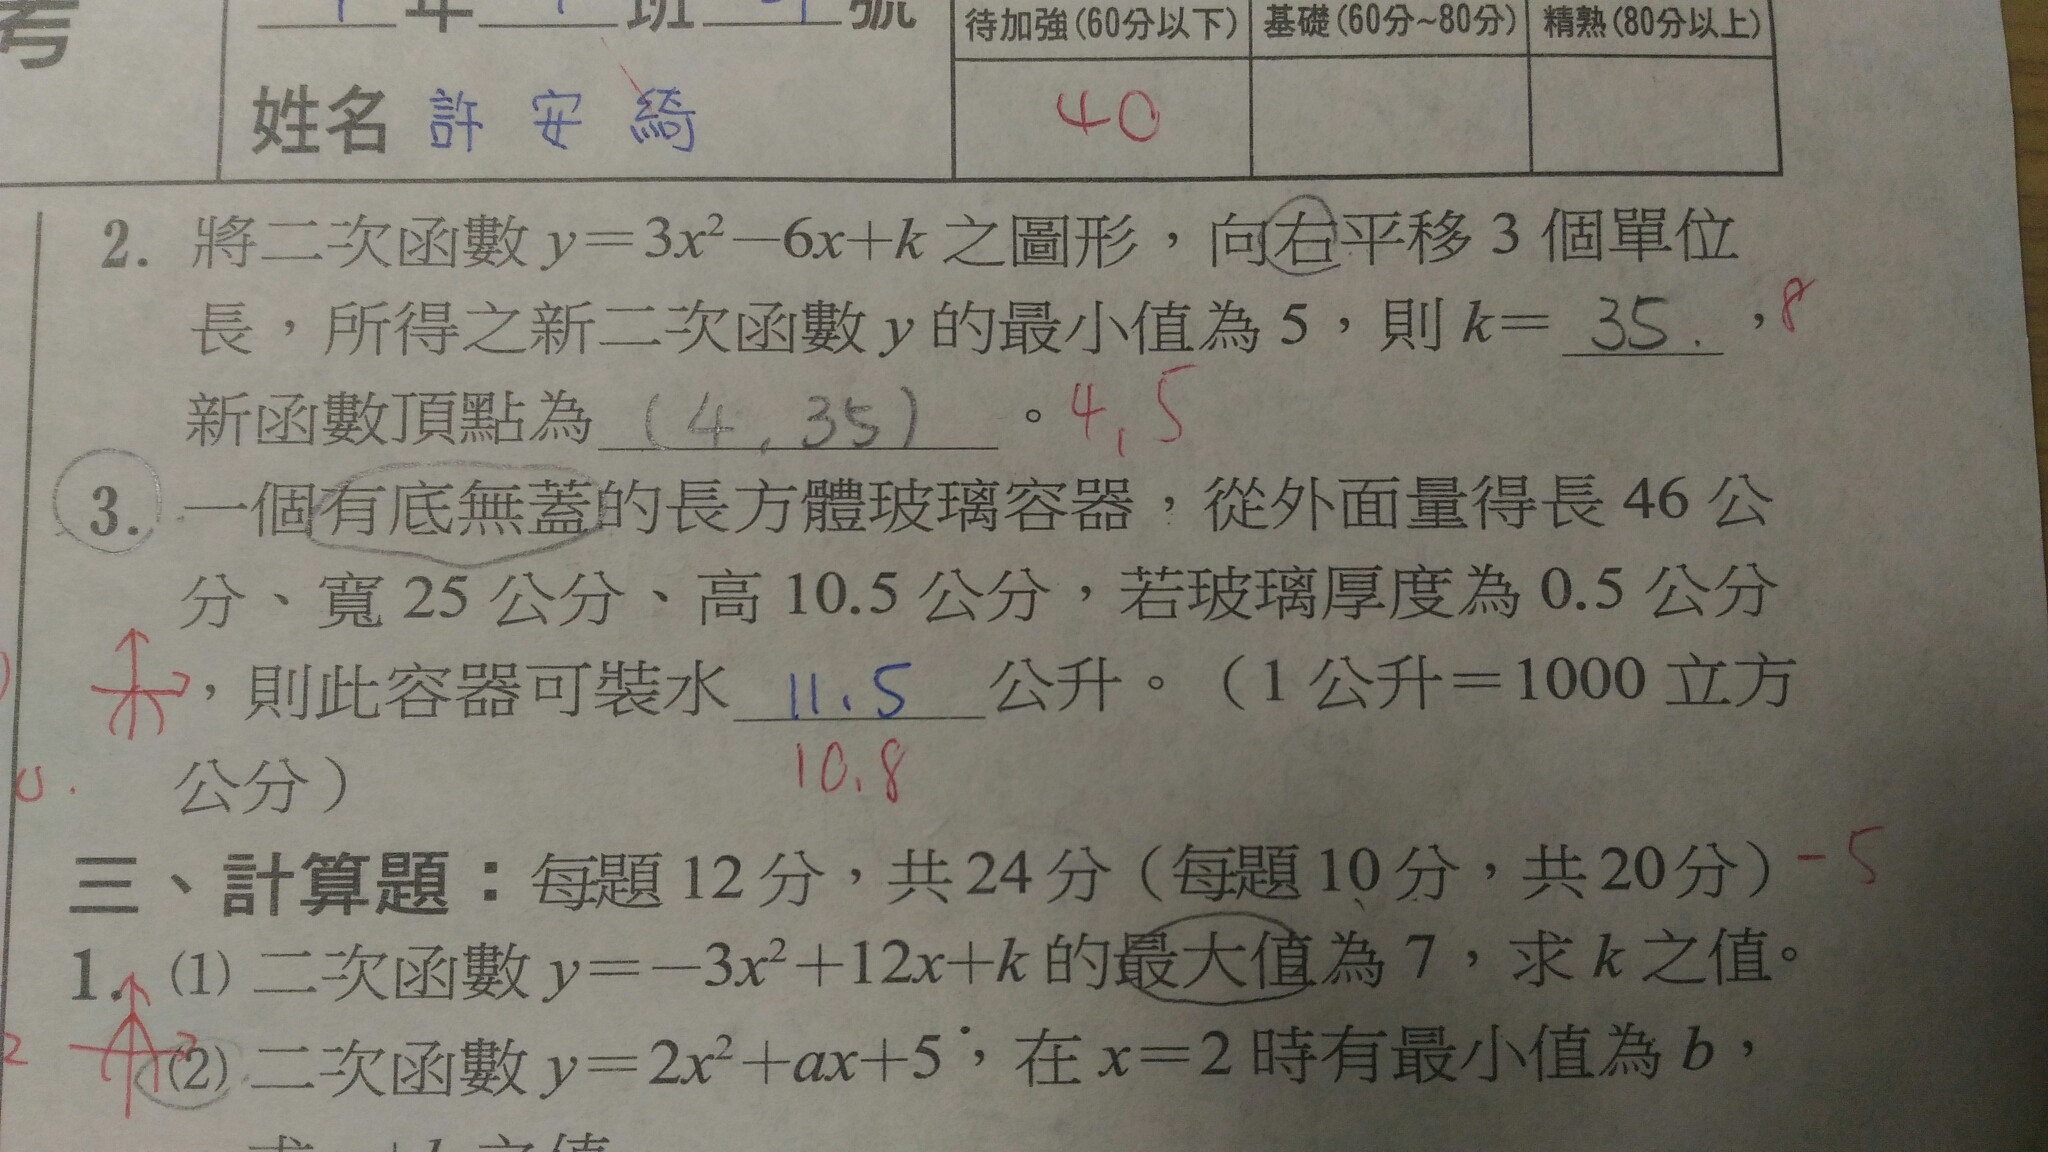 考
年 班 號
待加強(60分以下) 基礎(60分~80分) 精熟(80分以上)
姓名 許安綺 40
2. 將二次函數 y=3x²-6x+k 之圖形，向右平移 3 個單位
長，所得之新二次函數 y 的最小值為 5，則 k= 35. ，8
新函數頂點為 (4, 35) 。4, 5
3. 一個有底無蓋的長方體玻璃容器，從外面量得長 46 公
分、寬 25 公分、高 10.5 公分，若玻璃厚度為 0.5 公分
，則此容器可裝水 11.5 公升。（1 公升=1000 立方
10.8
公分）
三、計算題：每題 12 分，共 24 分（每題 10 分，共 20 分）-5
1. (1) 二次函數 y=-3x²+12x+k 的最大值為 7，求 k 之值。
(2) 二次函數 y=2x²+ax+5，在 x=2 時有最小值為 b，